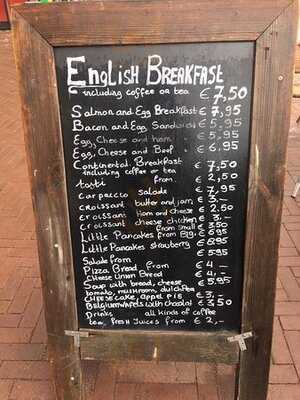 English Breakfast
including coffee or tea € 7,50
Salmon and Egg Breakfast € 7,95
Bacon and Egg Sandwich € 5,95
Egg, Cheese and ham € 5,95
Egg, Cheese and Beef € 6,95
Continental Breakfast € 7,50
including coffee or tea
from € 2,50
carpaccio salade € 7,95
croissant butter and jam € 3,-
croissant Ham and cheese € 2.50
croissant chicken € 3.-
Little Pancakes from small € 3.50
from Big € 6.95
Little Pancakes strawberry € 8.95
Salade from € 5.95
Pizza Bread from € 4,-
cheese Union Bread € 4,-
Soup with bread, cheese € 5,95
tomato, mushroom, dutch Pea
cheesecake, appel pie € 3,-
Belgiumwafels with chocolat € 3,50
Drinks all kinds of coffee
tea, fresh Juices from € 2,-